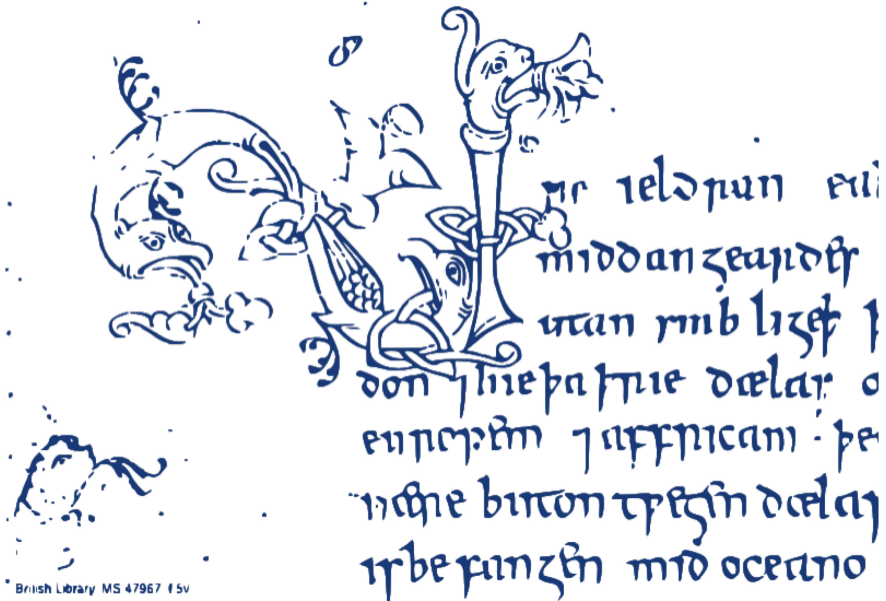 Ure ieldran eal
middangeardes
utan ymb ligeþ þ
don ⁊ hie þa þrie dælas o
europem ⁊ affricam · þe
nære buton tƿegen dælas
is be fangen mid oceano
British Library MS 47967 f 5v